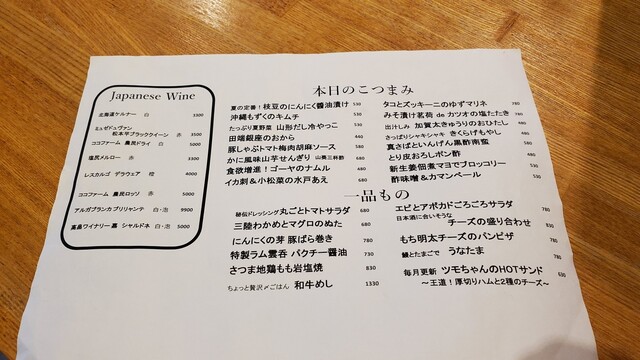 Japanese Wine
北海道ケルナー 白 3300
ミュゼドュヴァン
松本平ブラッククイーン 赤 3500
ココファーム 農民ドライ 白 5000
塩尻メルロー 赤 3300
レスカルゴ デラウェア 橙 4000
ココファーム 農民ロッソ 赤 5000
アルガブランカ ブリリャンテ 白・泡 9900
高畠ワイナリー 嘉 シャルドネ 白・泡 5000
本日のこつまみ
夏の定番！枝豆のにんにく醤油漬け 530
沖縄もずくのキムチ 530
たっぷり夏野菜 山形だし冷やっこ 530
田端銀座のおから 440
豚しゃぶトマト梅肉胡麻ソース 580
かに風味山芋せんぎり 山葵三杯酢 680
食欲増進！ゴーヤのナムル 480
イカ刺&小松菜の水戸あえ 680
タコとズッキーニのゆずマリネ 780
みそ漬け茗荷 de カツオの塩たたき 780
出汁しみ 加賀太きゅうりのおひたし 480
さっぱりシャキシャキ きくらげもやし 480
真さばといんげん黒酢南蛮 580
とり皮おろしポン酢 480
新生姜佃煮マヨでブロッコリー 580
酢味噌&カマンベール 580
一品もの
秘伝ドレッシング 丸ごとトマトサラダ 680
三陸わかめとマグロのぬた 680
にんにくの芽 豚ばら巻き 780
特製ラム雲呑 パクチー醤油 730
さつま地鶏もも岩塩焼 830
ちょっと贅沢〆ごはん 和牛めし 1330
エビとアボカドごろごろサラダ 780
日本酒に合いそうな
チーズの盛り合わせ 930
もち明太チーズのパンピザ 780
鰻とたまごで うなたま 780
毎月更新 ツモちゃんのHOTサンド 630
～王道！厚切りハムと2種のチーズ～